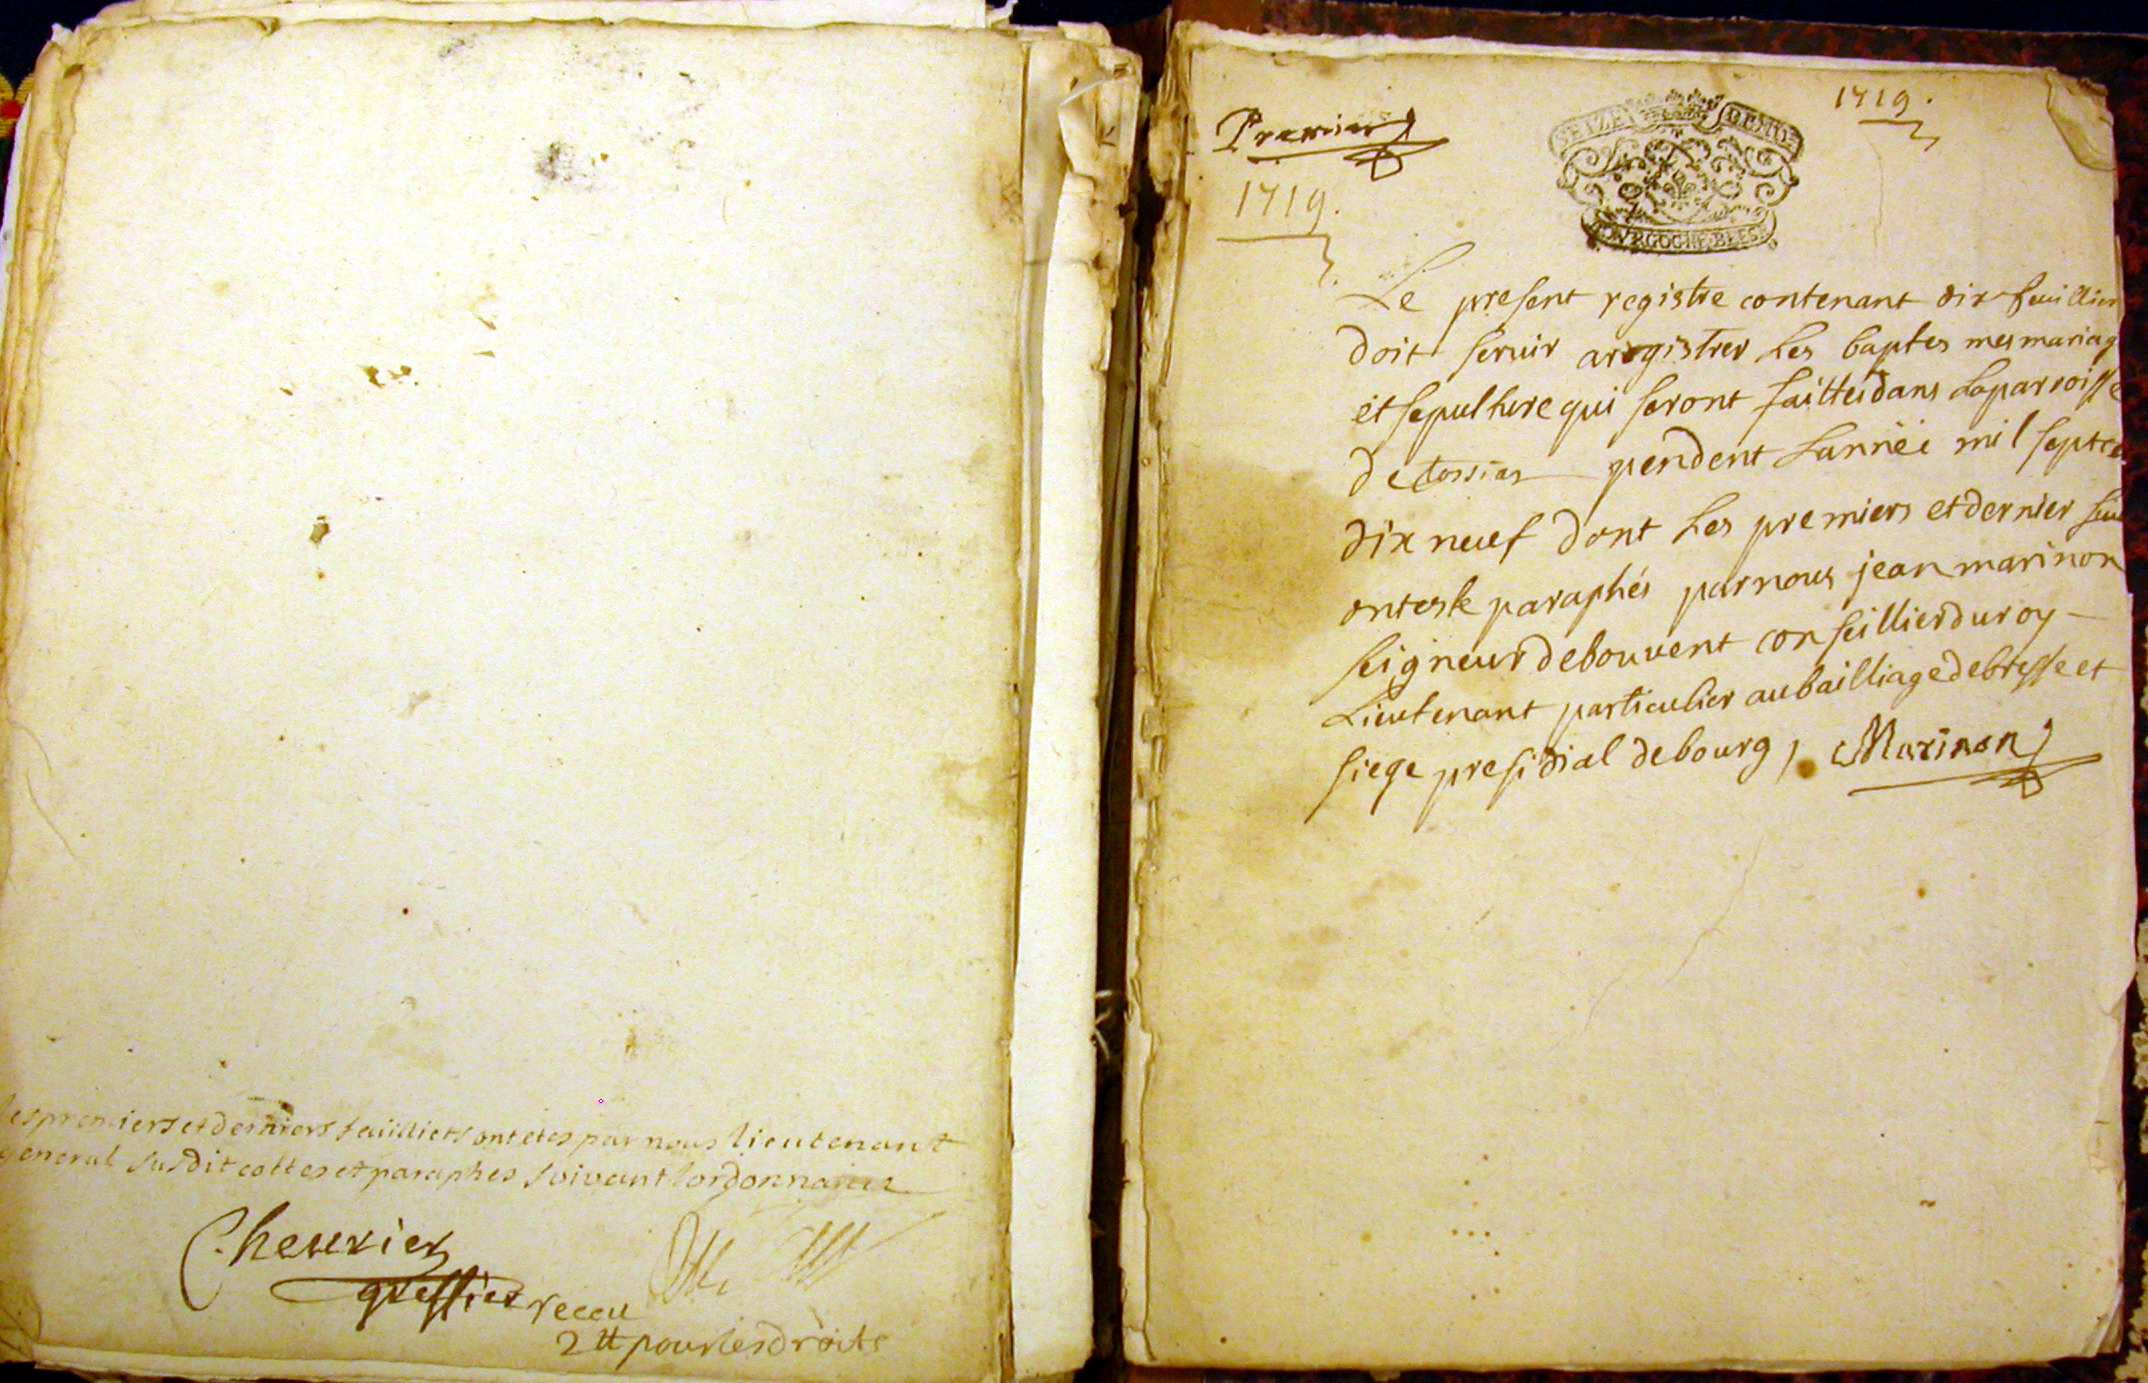 les premiers et derniers feüilliets ont etes par nous lieutenant
general susdit cottes et paraphes suivant lordonnance
Cheurier
greffier receu
2 tt pour les droits
Premier
1719.
1719.
BOVRGOGNE BRESS
Le present registre contenant dix feuillier
doit seruir aregistrer Les baptes mes mariag
et sepulture qui seront faittes dans Laparroisse
de Cossiat pendent Lanneé mil septce
dix neuf dont Les premiers et dernier feui
onteste paraphés par nous jean marinon
seigneur debouuent conseillier du roy
Lieutenant particulier au bailliage debresse et
siege presidial debourg, Marinon